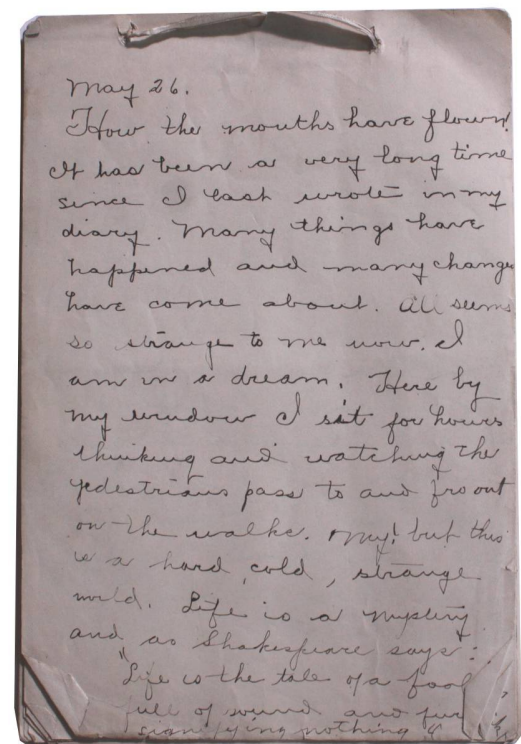 May 26.
How the months have flown!
It has been a very long time
since I last wrote in my
diary. Many things have
happened and many change
have come about. All seems
so strange to me now. I
am in a dream. Here by
my window I sit for hours
thinking and watching the
pedestrians pass to and fro out
on the walks. My! but this
is a hard, cold, strange
world. Life is a mystery
and as Shakespeare says:
"Life is the tale of a fool
full of sound and fury
signifying nothing."